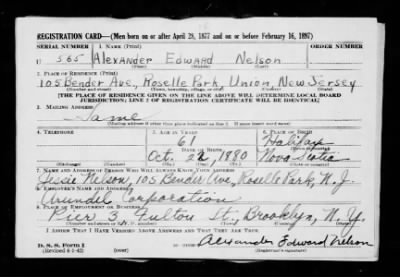 REGISTRATION CARD—(Men born on or after April 28, 1877 and on or before February 16, 1897)
SERIAL NUMBER 1. NAME (Print) ORDER NUMBER
U 565 Alexander Edward Nelson
(First) (Middle) (Last)
2. PLACE OF RESIDENCE (Print)
105 Bender Ave, Roselle Park, Union, New Jersey
(Number and street) (Town, township, village, or city) (County) (State)
[THE PLACE OF RESIDENCE GIVEN ON THE LINE ABOVE WILL DETERMINE LOCAL BOARD
JURISDICTION; LINE 2 OF REGISTRATION CERTIFICATE WILL BE IDENTICAL]
3. MAILING ADDRESS
Same
[Mailing address if other than place indicated on line 2. If same insert word same]
4. TELEPHONE 5. AGE IN YEARS 6. PLACE OF BIRTH
61 Halifax
DATE OF BIRTH (Town or county)
Oct. 22, 1880 Nova Scotia
(Exchange) (Number) (Mo.) (Day) (Yr.) (State or country)
7. NAME AND ADDRESS OF PERSON WHO WILL ALWAYS KNOW YOUR ADDRESS
Jessie Nelson, 105 Bender Ave, Roselle Park, N. J.
8. EMPLOYER'S NAME AND ADDRESS
Arundel Corporation
9. PLACE OF EMPLOYMENT OR BUSINESS
Pier 3, Fulton St., Brooklyn, N. Y.
(Number and street or R. F. D. number) (Town) (County) (State)
I AFFIRM THAT I HAVE VERIFIED ABOVE ANSWERS AND THAT THEY ARE TRUE.
D. S. S. Form 1
(Revised 4-1-42) (over) Alexander Edward Nelson